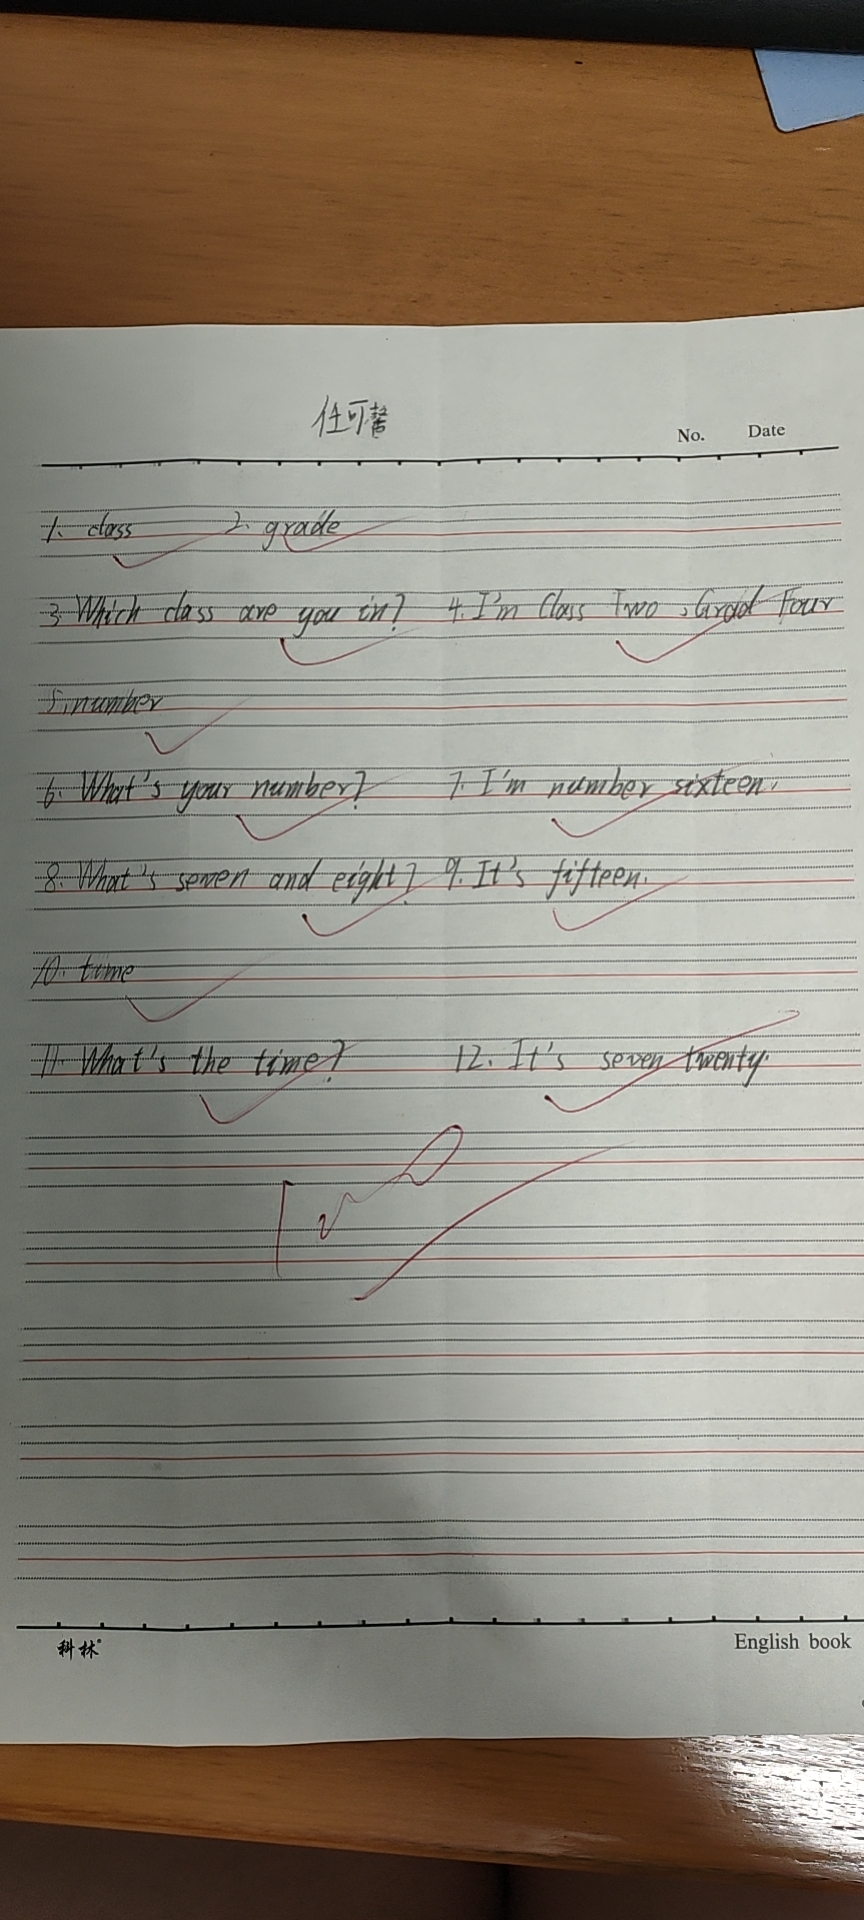 任可馨
No. Date
1. class 2. grade
3. Which class are you in? 4. I'm Class Two, Grad Four
5. number
6. What's your number? 7. I'm number sixteen.
8. What's seven and eight? 9. It's fifteen.
10. time
11. What's the time? 12. It's seven twenty.
科林
English book